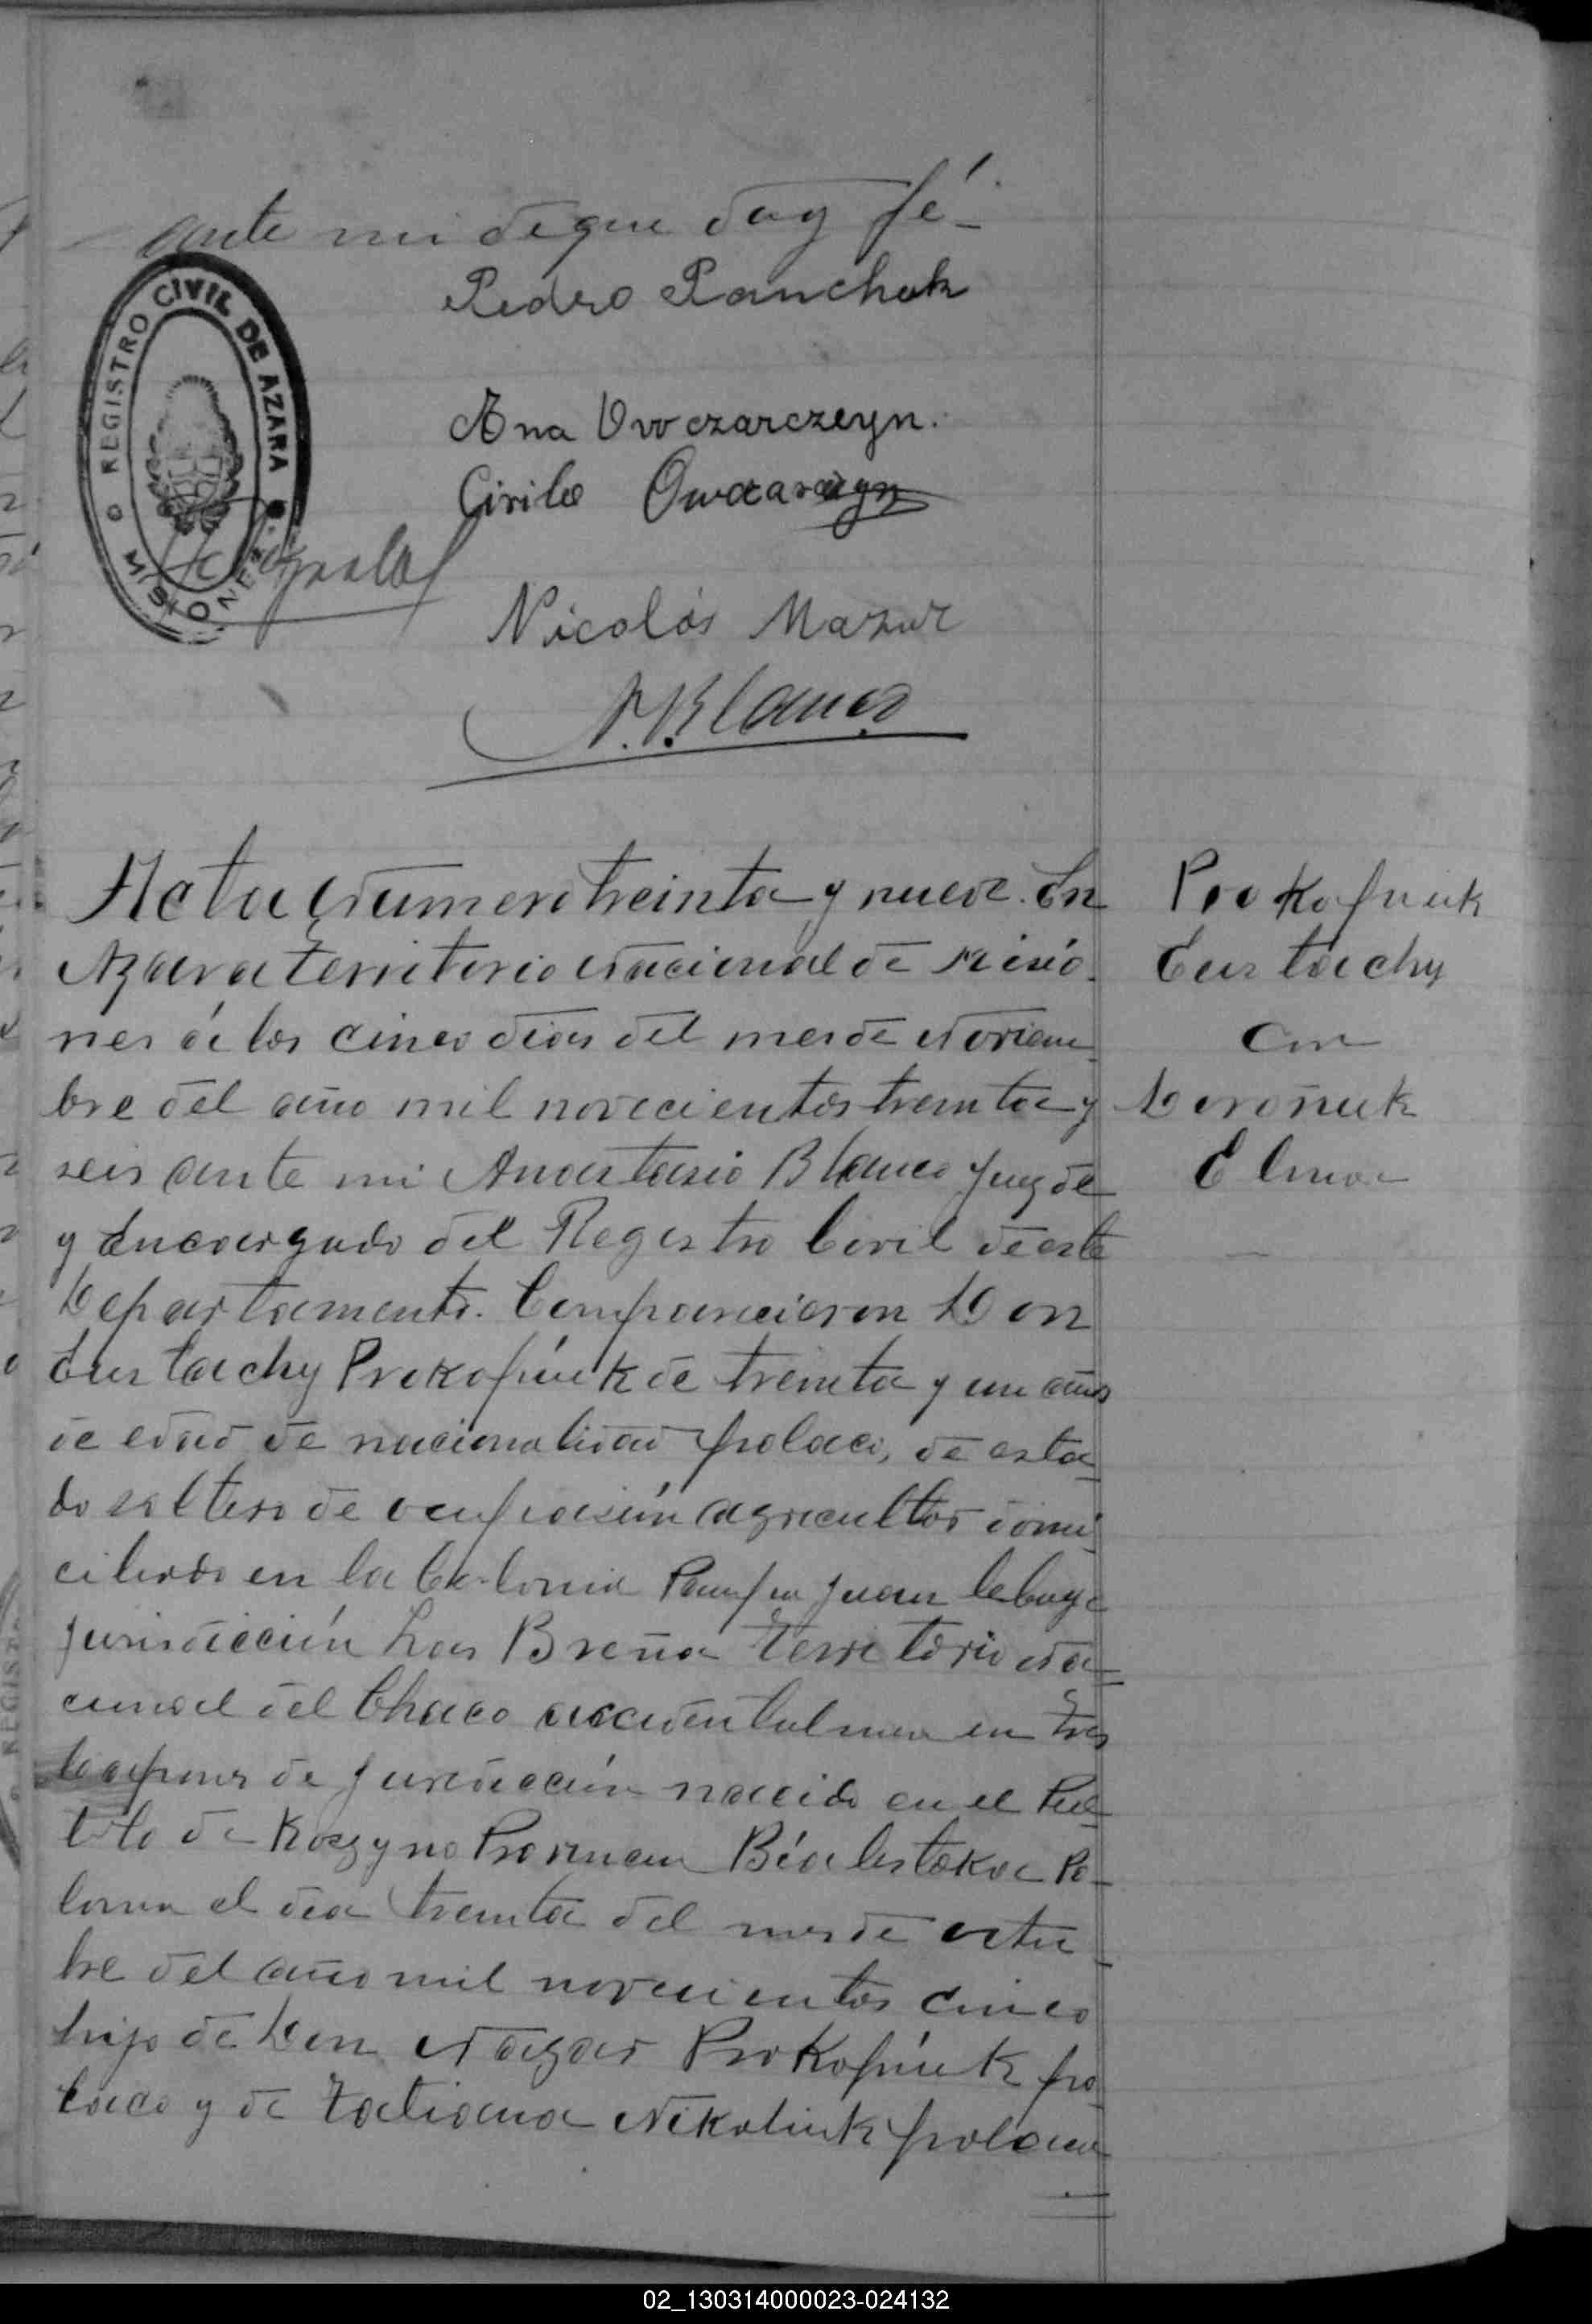 ante mi de que doy fé_
Pedro Panchuk
REGISTRO CIVIL DE AZARA
MISIONES
Ana Owoczarczeyn.
Cirilo
Nicolás Mazur
A. Blanco
Acta Número treinta y nueve. En
Azara territorio Nacional de Misio-
nes á los cinco dias del mes de Noviem-
bre del año mil novecientos treinta y
seis ante mi Anastasio Blanco Juez de
y Encargado del Registro Civil de este
Departamento. Comparecieron Don
Eustachy Prokopiuk de treinta y un años
de edad de nacionalidad polaco, de esta-
do soltero de ocupasión agricultor domi-
ciliado en la Colonia Pampa Juan
jurisdicción Las Breña Territorio Na-
cional del Chaco accidentalmen en Tres
Capones de jurisdicción nacido en el Pue-
blo de Koszyno Provincia Biolestoka Po-
lonia el dia treinta del mes de octu-
bre del año mil novecientos cinco
hijo de Don Nazar Prokopiuk po-
laco y de Tatiana Nikoliuk polaca
Prokopiuk
Eustachy
Con
Doroñuk
Elena
02_130314000023-024132